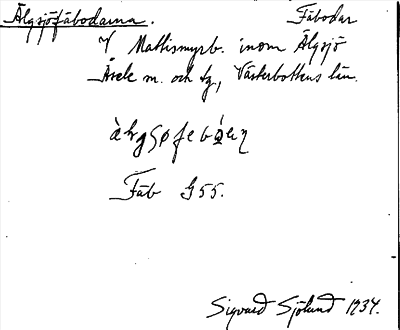 Älgsjöfäbodarna. Fäbodar
Mattismyrb. inom Älgsjö
Åsele m. och tg, Västerbottens län.
Fäb G55.
Sigvard Sjölund 1934.